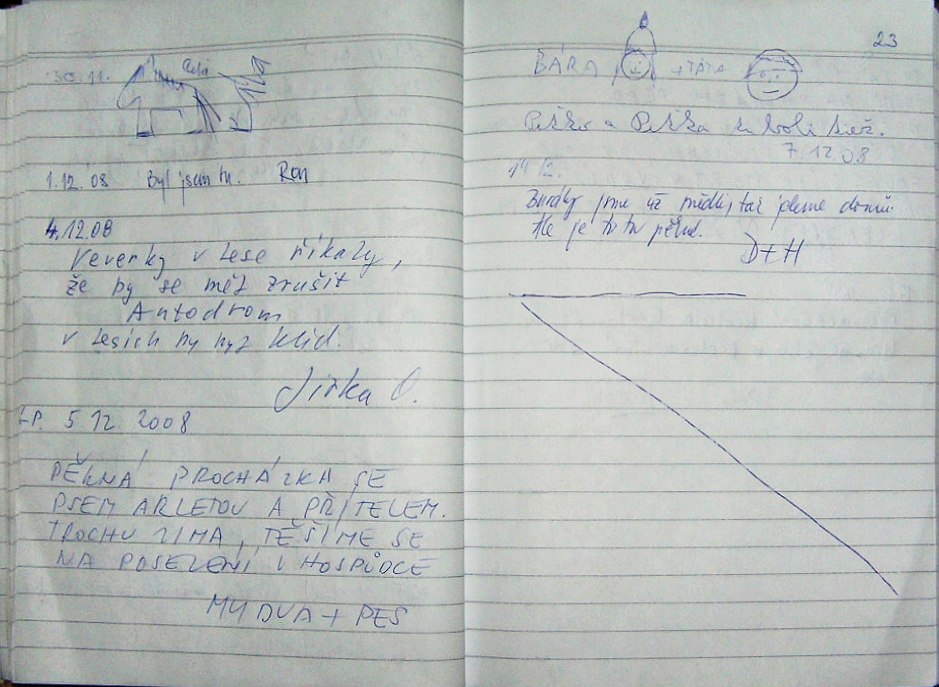 30.11.
1.12.08 Byl jsem tu. Ron
4.12.08
Veverky v lese říkaly,
že by se měl zrušit
Autodrom
v lesích by byl klid.
Jirka O.
5.12.2008
PĚKNÁ PROCHÁZKA SE
PSEM ARLETOU A PŘÍTELEM.
TROCHU ZIMA, TĚŠÍME SE
NA POSEZENÍ V HOSPŮDCE
MY DVA + PES
23
BÁRA + TÁTA
a
7.12.08
jsme už mědli, tak jdeme domů.
Ale je to tu pěkné.
D+H